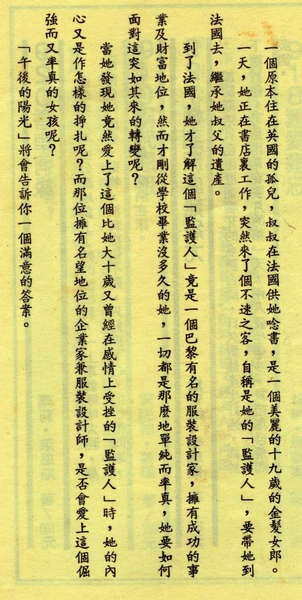 一個原本住在英國的孤兒，叔叔在法國供她唸書，是一個美麗的十九歲的金髮女郎。
一天，她正在書店裏工作，突然來了個不速之客，自稱是她的「監護人」，要帶她到
法國去，繼承她叔父的遺產。
到了法國，她才了解這個「監護人」竟是一個巴黎有名的服裝設計家，擁有成功的事
業及財富地位，然而才剛從學校畢業沒多久的她，一切都是那麼地單純而率真，她要如何
面對這突如其來的轉變呢？
當她發現她竟然愛上了這個比她大十歲又曾經在感情上受挫的「監護人」時，她的內
心又是作怎樣的掙扎呢？而那位擁有名望地位的企業家兼服裝設計師，是否會愛上這個倔
強而又率真的女孩呢？
「午後的陽光」將會告訴你一個滿意的答案。